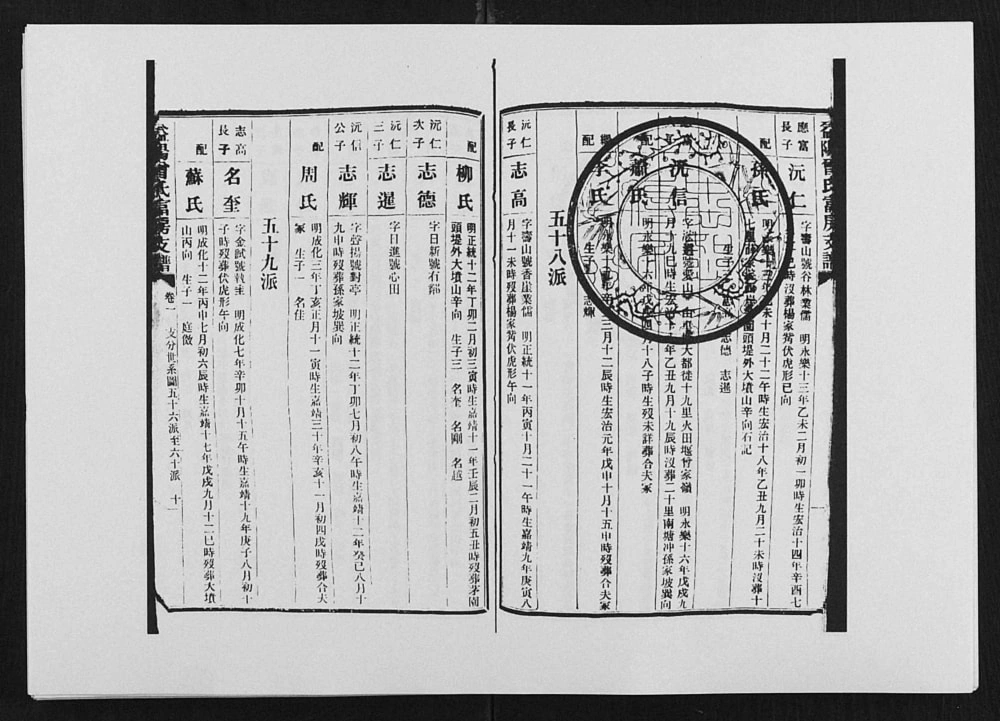 應富長子
沅仁
字壽山號谷林業儒 明永樂十三年乙未二月初一卯時生宏治十四年辛酉七
巳時沒葬楊家觜伏虎形巳向
配
孫氏
十月二十二午時生宏治十八年乙丑九月二十未時沒葬十
園頭堤外大墳山辛向石記
志德 志暹
沅信
大都徙十九里火田堰曾家嶺 明永樂十六年戊戌九
月十九巳時生宏治十八年乙丑九月十九辰時沒葬二十里南塘冲孫家坡巽向
配
蕭氏
明永樂十六年戊戌四月十八子時生歿未詳葬合夫冢
繼配
李氏
三月十二辰時生宏治元年戊申十月十五申時歿葬合夫冢
生子 志輝
五十八派
沅仁長子
志高
字壽山號香崖業儒 明正統十一年丙寅十月二十一午時生嘉靖九年庚寅八
月十一未時歿葬楊家觜伏虎形午向
配
柳氏
明正統十二年丁卯二月初三寅時生嘉靖十一年壬辰二月初五丑時歿葬茅園
頭堤外大墳山辛向 生子三 名奎 名剛 名越
沅仁次子
志德
字日新號石谿
沅仁三子
志暹
字日進號心田
沅信公子
志輝
字聲揚號對亭 明正統十二年丁卯七月初八午時生嘉靖十二年癸巳八月十
九申時歿葬孫家坡巽向
配
周氏
明成化三年丁亥正月十一寅時生嘉靖三十年辛亥十一月初四戌時歿葬合夫
冢 生子一 名佳
五十九派
志高長子
名奎
字金試號執圭 明成化七年辛卯十月十五午時生嘉靖十九年庚子八月初十
子時歿葬伏虎形午向
配
蘇氏
明成化十二年丙申七月初六辰時生嘉靖十七年戊戌九月十二巳時歿葬大墳
山丙向 生子一 庭倣
益陽曾氏富房支譜
卷一
支分世系圖五十六派至六十派
十